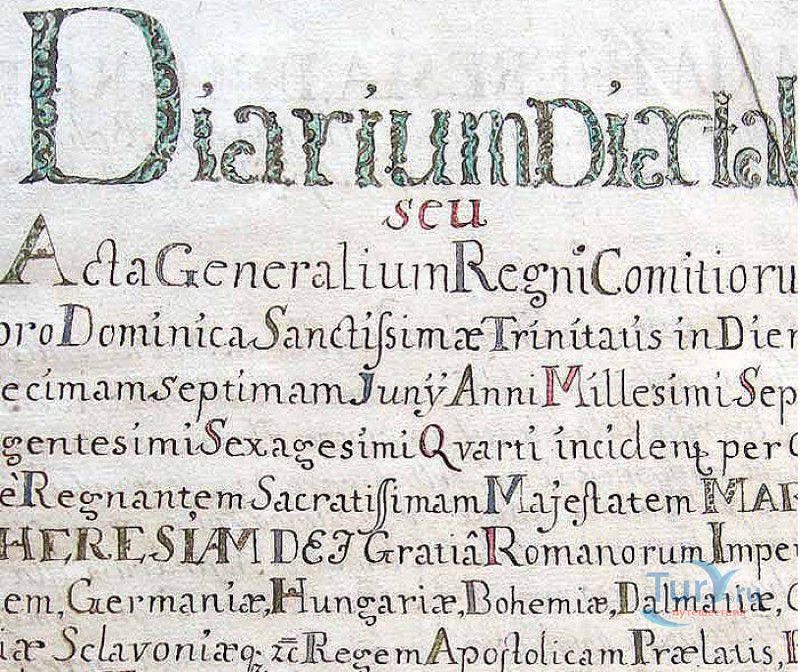 Diarium Diætal
seu
Acta Generalium Regni Comitioru
pro Dominica Sanctissimæ Trinitatis in Dier
ecimam septimam Junÿ Anni Millesimi Sep
gentesimi Sexagesimi Qvarti incident per
è Regnantem Sacratissimam Majestatem MAR
HERESIAM DEI Gratiâ Romanorum Impe
em, Germaniæ, Hungariæ, Bohemiæ, Dalmatiæ, C
iæ Sclavoniæq; Regem Apostolicam Prælatis,
Tury.ru